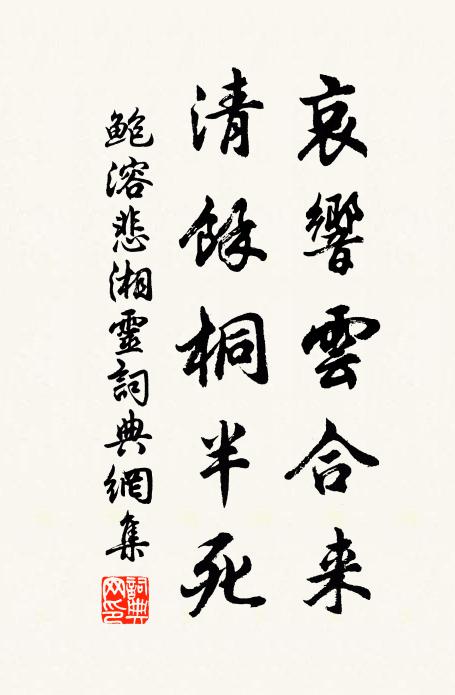 哀響雲合来
清餘桐半死
鮑溶悲湘靈詞典網集
詞典
网印